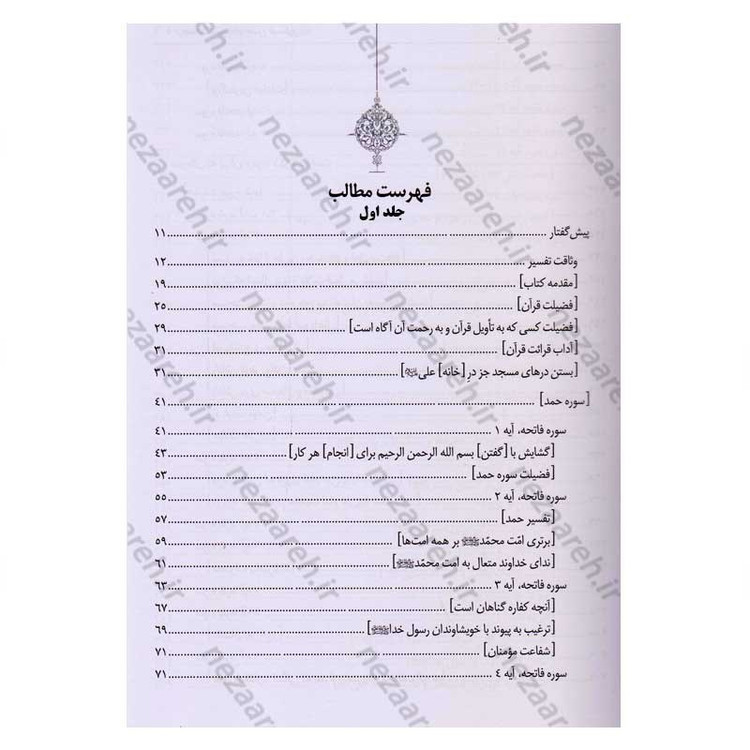 فهرست مطالب
جلد اول
پیش‌گفتار ........ ۱۱
وثاقت تفسیر ........ ۱۲
[مقدمه کتاب] ........ ۱۹
[فضیلت قرآن] ........ ۲۵
[فضیلت کسی که به تأویل قرآن و به رحمت آن آگاه است] ........ ۲۹
[آداب قرائت قرآن] ........ ۳۱
[بستن درهای مسجد جز درِ [خانه] علی] ........ ۳۱
[سوره حمد] ........ ۴۱
سوره فاتحه، آیه ۱ ........ ۴۱
[گشایش با [گفتن] بسم الله الرحمن الرحیم برای [انجام] هر کار] ........ ۴۳
[فضیلت سوره حمد] ........ ۵۳
سوره فاتحه، آیه ۲ ........ ۵۵
[تفسیر حمد] ........ ۵۷
[برتری امّت محمّدﷺ بر همه امت‌ها] ........ ۵۹
[ندای خداوند متعال به امت محمّدﷺ] ........ ۶۱
سوره فاتحه، آیه ۳ ........ ۶۳
[آنچه کفاره گناهان است] ........ ۶۷
[ترغیب به پیوند با خویشاوندان رسول خداﷺ] ........ ۶۹
[شفاعت مؤمنان] ........ ۷۱
سوره فاتحه، آیه ۴ ........ ۷۱
nezaareh.ir